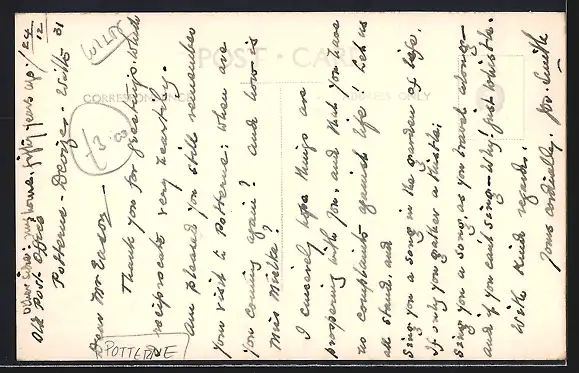 Other side: my home, fifty years ago / 24/12
Old Post Office
Potterne - Devizes - Wilts 31
Dear Mr Eason
Thank you for greetings which
reciprocate very heartily.
am pleased you still remember
your visit to Potterne: when are
you coming again? and how is
Miss
I sincerely hope things are
prospering with you, and that you have
no complaints against life! Let us
all stand, and
Sing you a song in the garden of life,
If only you gather a thistle:
Sing you a song, as you travel along—
and if you cant sing—Why! just whistle.
With Kind regards,
Yours cordially. Jno. Smith
POST CARD
CORRESPONDENCE
ADDRESS ONLY
WILTS
£3.00
POTTERNE